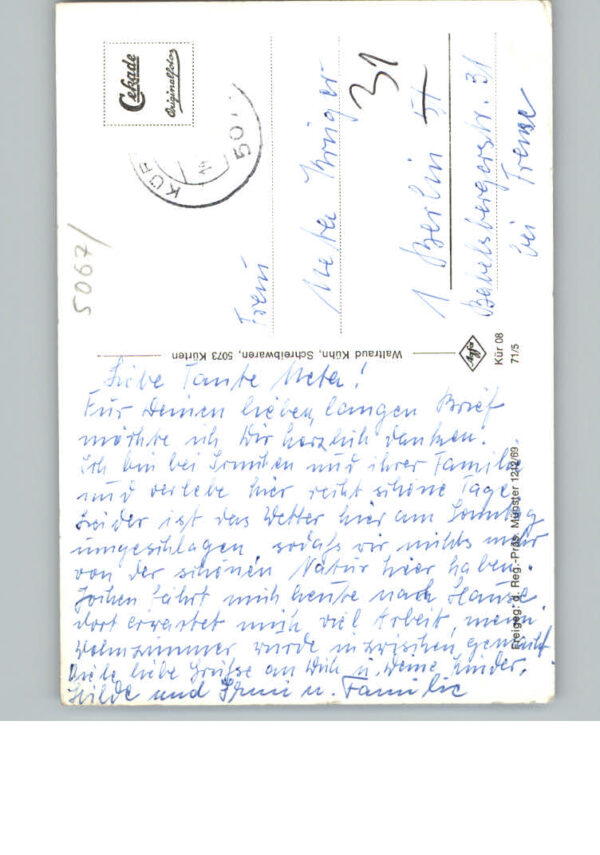 Liebe Tante Meta!
Für Deinen lieben, langen Brief
möchte ich Dir herzlich danken.
Ich bin bei und ihrer Familie
und verlebe hier recht schöne Tage.
Leider ist das Wetter hier am Sonntag
umgeschlagen, sodaß wir nichts mehr
von der schönen Natur hier haben.
Jochen fährt mich heute nach Hause
dort erwartet mich viel Arbeit, mein
Wohnzimmer wurde inzwischen gemacht
Viele liebe Grüße an Dich u. Deine Kinder.
Hilde und u. Familie
Frau
Meta Krüger
1 Berlin 51
31
Babelsbergerstr. 31
bei
Cekade
Originalfoto
KÜR
50
5067/
Waltraud Kühn, Schreibwaren, 5073 Kürten
Agfa
Kür 08
71/5
Freigeg. d. Reg.-Präs. Münster 1212/69